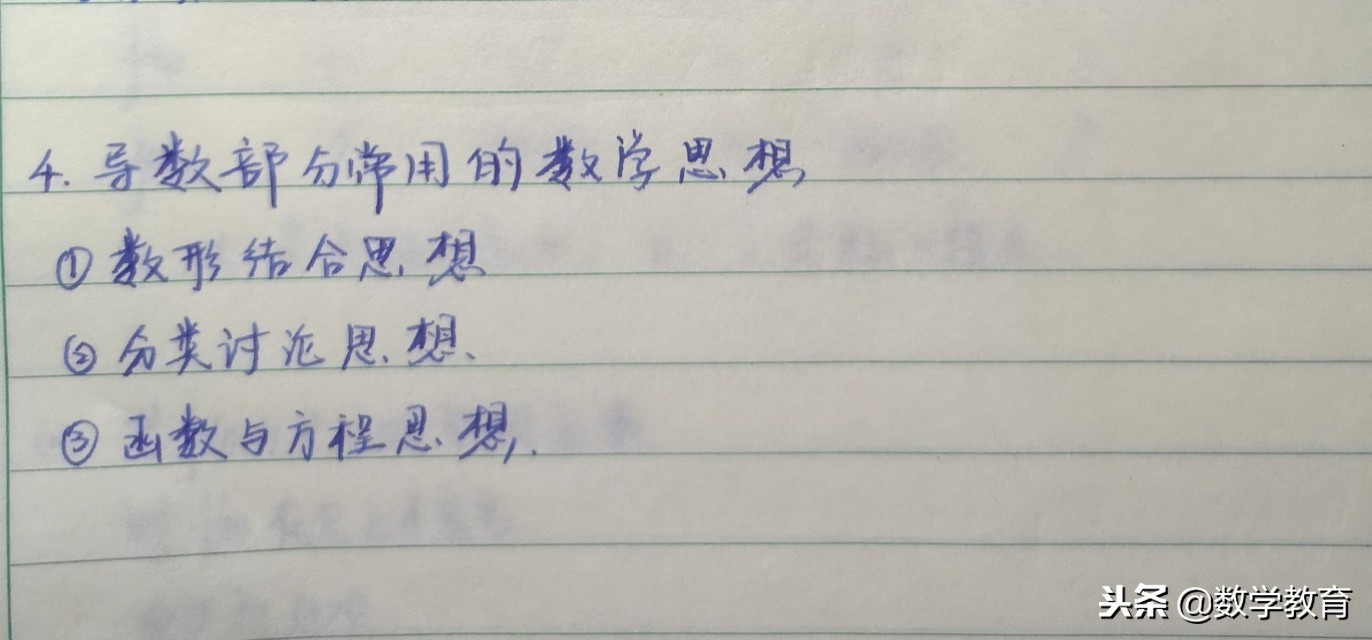 4. 导数部分常用的数学思想
① 数形结合思想
② 分类讨论思想、
③ 函数与方程思想.
头条 @数学教育